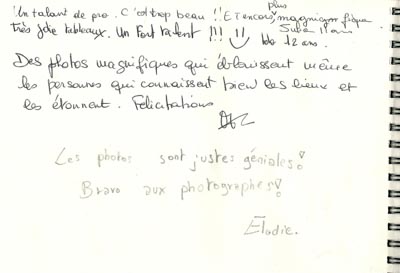 Un talant de pro. C'est trop beau !! ET encore plus magnifique
Très jolie tableaux. Un Fort talent !!! 12 ans.
Des photos magnifiques qui éblouissent même
les personnes qui connaissent bien les lieux et
les étonnent. Félicitations
Les photos sont justes géniales!
Bravo aux photographes!
Élodie.